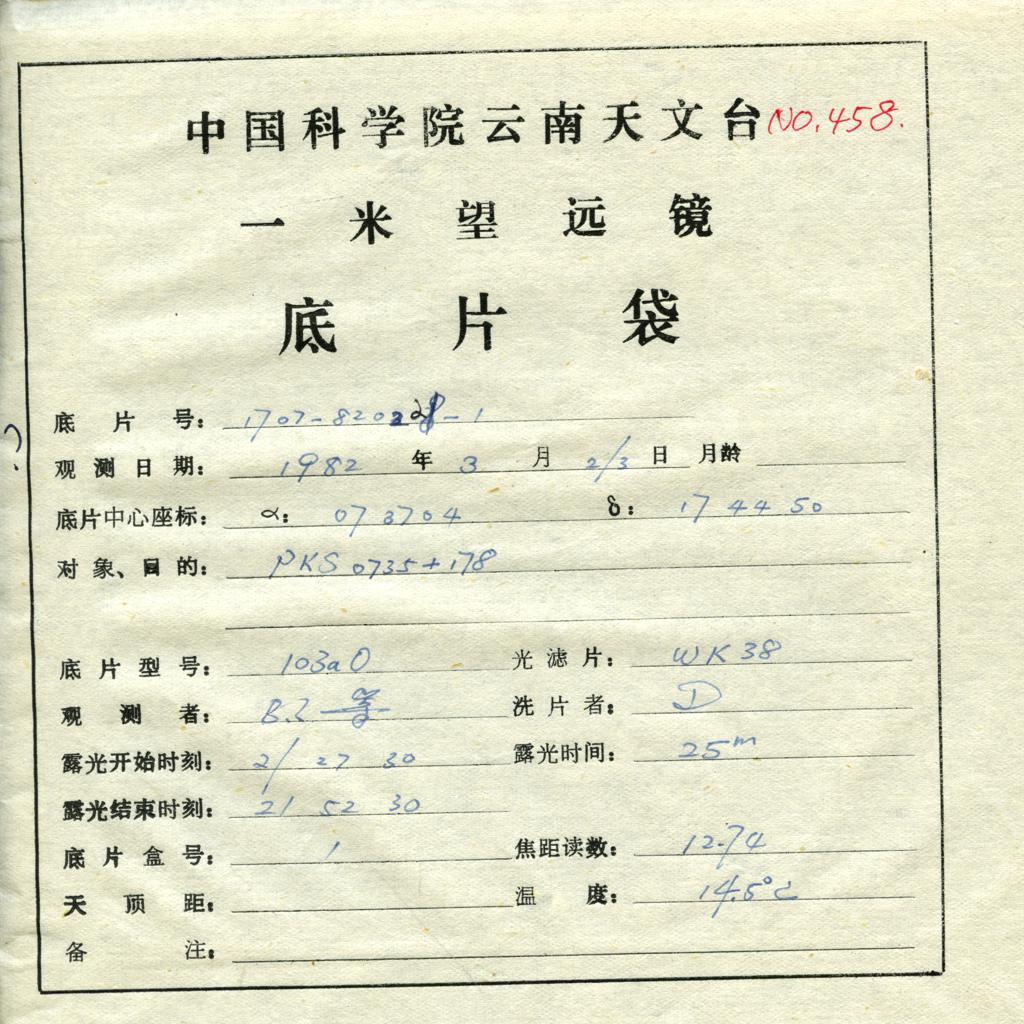 中国科学院云南天文台 NO.458.
一米望远镜
底片袋
底片号： 1707-820228-1
观测日期： 1982 年 3 月 2/3 日 月龄
底片中心座标： α： 07 37 04 δ： 17 44 50
对象、目的： PKS 0735+178
底片型号： 103aO 光滤片： WK38
观测者： 洗片者： D
露光开始时刻： 21 27 30 露光时间： 25m
露光结束时刻： 21 52 30
底片盒号： 1 焦距读数： 12.74
天顶距： 温度： 14.5°C
备注：